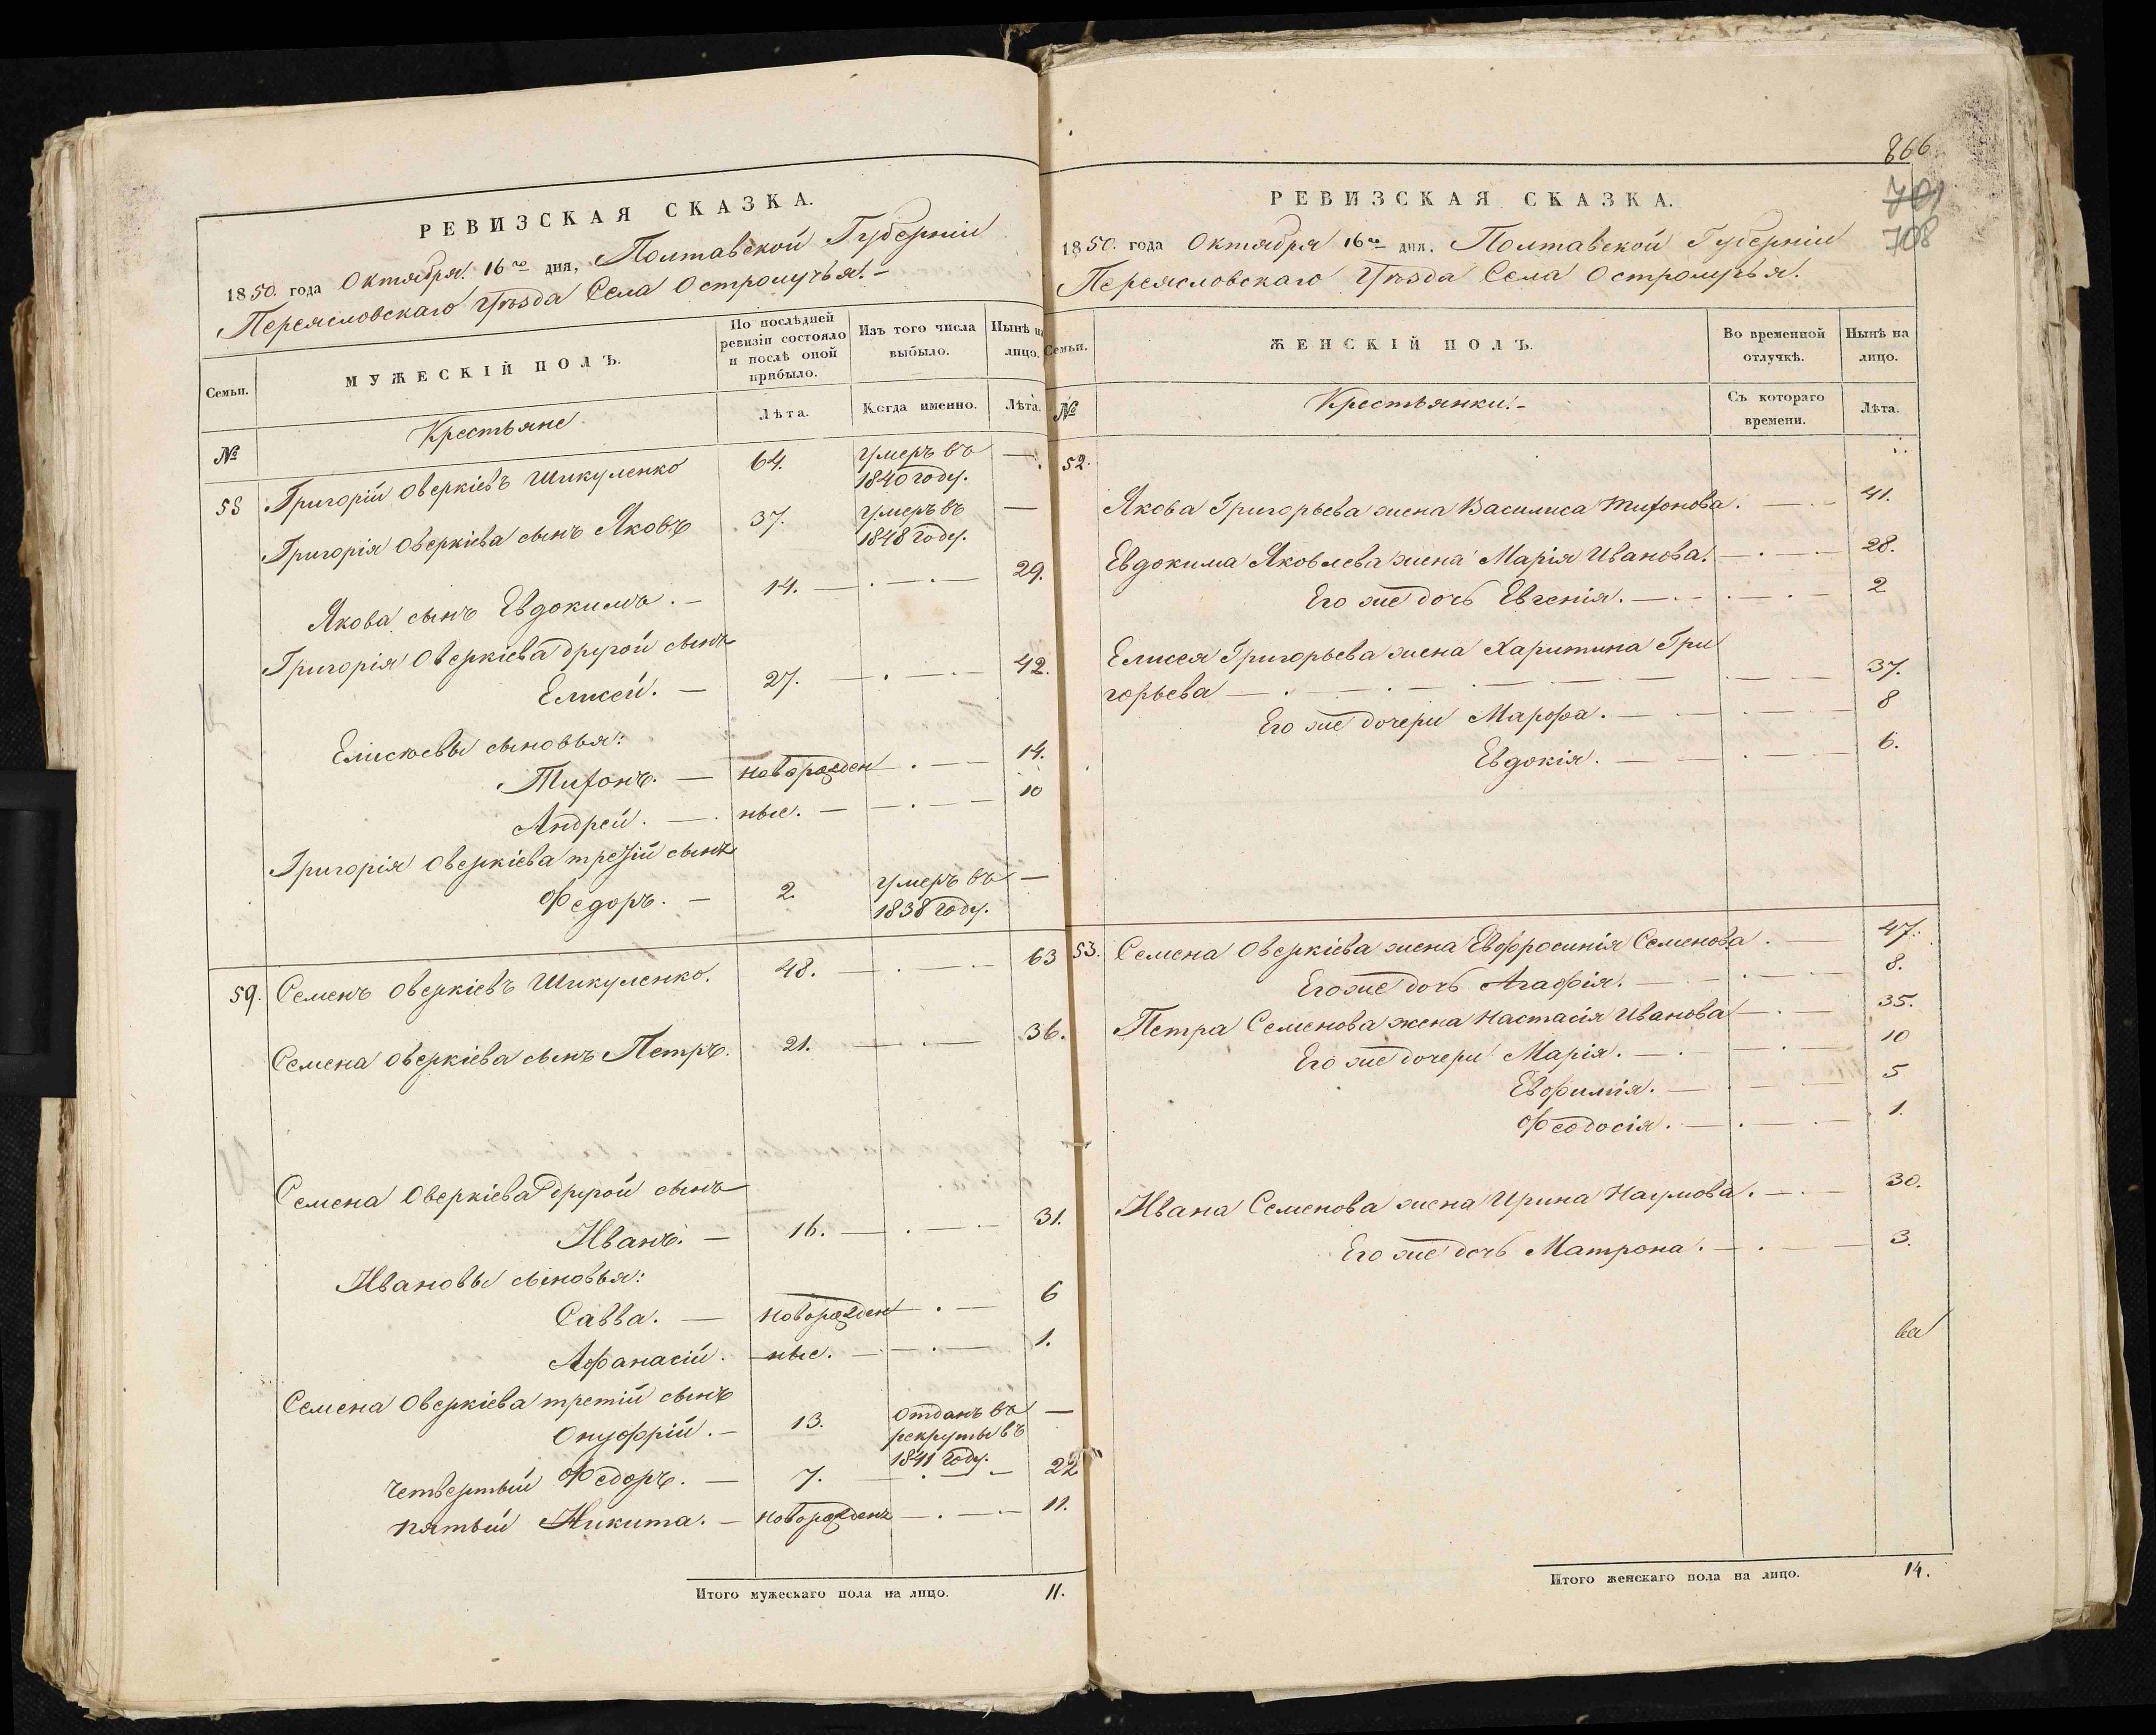 РЕВИЗСКАЯ СКАЗКА.
1850. года Октября 16го дня, Полтавской Губерніи
Переясловскаго Уѣзда Села Остролучья.
Семьи.
МУЖЕСКІЙ ПОЛЪ.
По послѣдней ревизіи состояло и послѣ оной прибыло.
Изъ того числа выбыло.
Нынѣ на лицо.
№
Крестьяне
Лѣта.
Когда именно.
Лѣта.
58 Григорій Оверкіевъ Шикуленко 64. умеръ въ —
1840 году.
Григорія Оверкіева сынъ Яковъ 37. умеръ въ —
1848 году.
Якова сынъ Евдокимъ. — 14. — . — . — 29.
Григорія Оверкіева другой сынъ
Елисей. — 27. — . — . — 42.
Елисѣевы сыновья:
Тифонъ. — новорожден — . — 14.
Андрей. — ные. — — . — 10
Григорія Оверкіева третій сынъ
Федоръ. — 2. умеръ въ —
1838 году.
59. Семенъ Оверкіевъ Шикуленко. 48. — . — . — 63
Семена Оверкіева сынъ Петръ. 21. — . — 36.
Семена Оверкіева другой сынъ
Иванъ. — 16. — . — . — 31.
Ивановы сыновья:
Савва. — новорожден — . — 6
Афанасій. — ные. — . — 1.
Семена Оверкіева третій сынъ
Онуфрій. — 13. Отданъ въ —
рекруты въ
1841 году.
четвертый Федоръ. — 7. — . — 22
пятый Никита. — новорожденъ — . — . — 11.
Итого мужескаго пола на лицо. 11.
866
701
708
РЕВИЗСКАЯ СКАЗКА.
1850. года Октября 16го дня, Полтавской Губерніи
Переясловскаго Уѣзда Села Остролучья.
Семьи.
ЖЕНСКІЙ ПОЛЪ.
Во временной отлучкѣ.
Нынѣ на лицо.
№
Крестьянки. —
Съ котораго времени.
Лѣта.
52.
Якова Григорьева жена Василиса Тифонова. — . — 41.
Евдокима Яковлева жена Марія Иванова. — . — . — 28.
Его же дочь Евгенія. — . — . — 2
Елисея Григорьева жена Харитина Гри
горьева — . — . — . — 37.
Его же дочери Марфа. — . — 8
Евдокія. — . — 6.
53. Семена Оверкіева жена Евфросинія Семенова. — 47.
Его же дочь Агафія. — . — 8.
Петра Семенова жена Настасія Иванова — . — 35.
Его же дочери Марія. — . — 10
Евфимія. — . — 5
Феодосія. — . — 1.
Ивана Семенова жена Ирина Наумова. — . — 30.
Его же дочь Матрона. — . — 3.
Итого женскаго пола на лицо. 14.